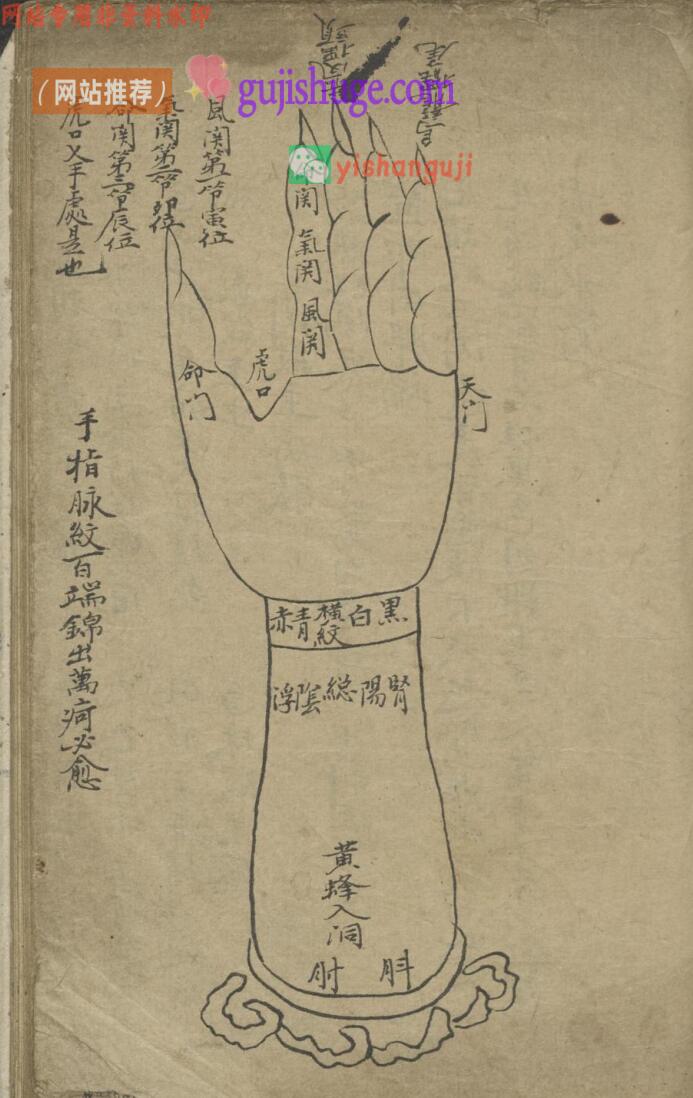 网站专用非资料水印
（网站推荐）
gujishuge.com
yishanguji
風関第一節寅位
氣関第二節卯位
命関第三節辰位
虎口叉手處是也
関
氣関
風関
虎口
命门
天门
手指脉紋百端錦出萬疴必愈
黑白横紋青赤
腎陽総陰浮
黄蜂入洞
斗肘